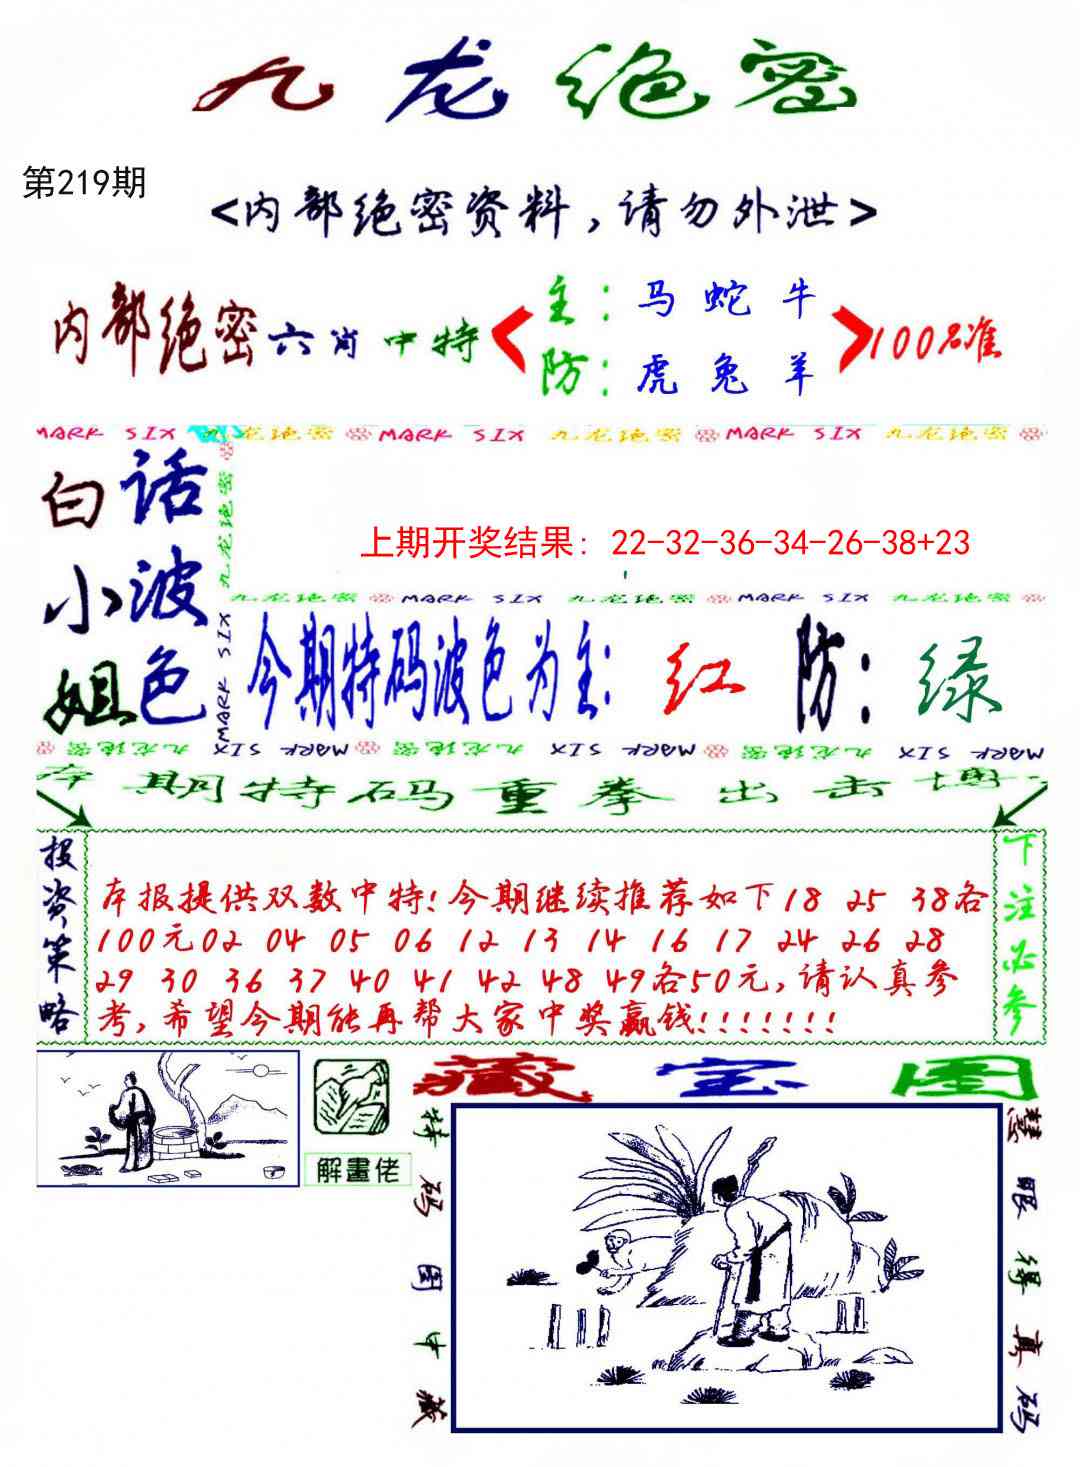 九龙绝密
第219期
<内部绝密资料,请勿外泄>
内部绝密六肖中特
主: 马 蛇 牛
防: 虎 兔 羊
100%准
MARK SIX 九龙绝密 MARK SIX 九龙绝密 MARK SIX 九龙绝密
白小姐
话波色
九龙绝密
MARK SIX
上期开奖结果: 22-32-36-34-26-38+23
九龙绝密 MARK SIX 九龙绝密 MARK SIX 九龙绝密
今期特码波色为主: 红 防: 绿
九龙绝密 MARK SIX 九龙绝密 MARK SIX 九龙绝密 MARK SIX
本期特码重拳出击博
投资策略
本报提供双数中特!今期继续推荐如下18 25 38各
100元02 04 05 06 12 13 14 16 17 24 26 28
29 30 36 37 40 41 42 48 49各50元,请认真参
考,希望今期能再帮大家中奖赢钱!!!!!!!
下注必参
解畫佬
藏宝图
特码图中藏
慧眼得真码